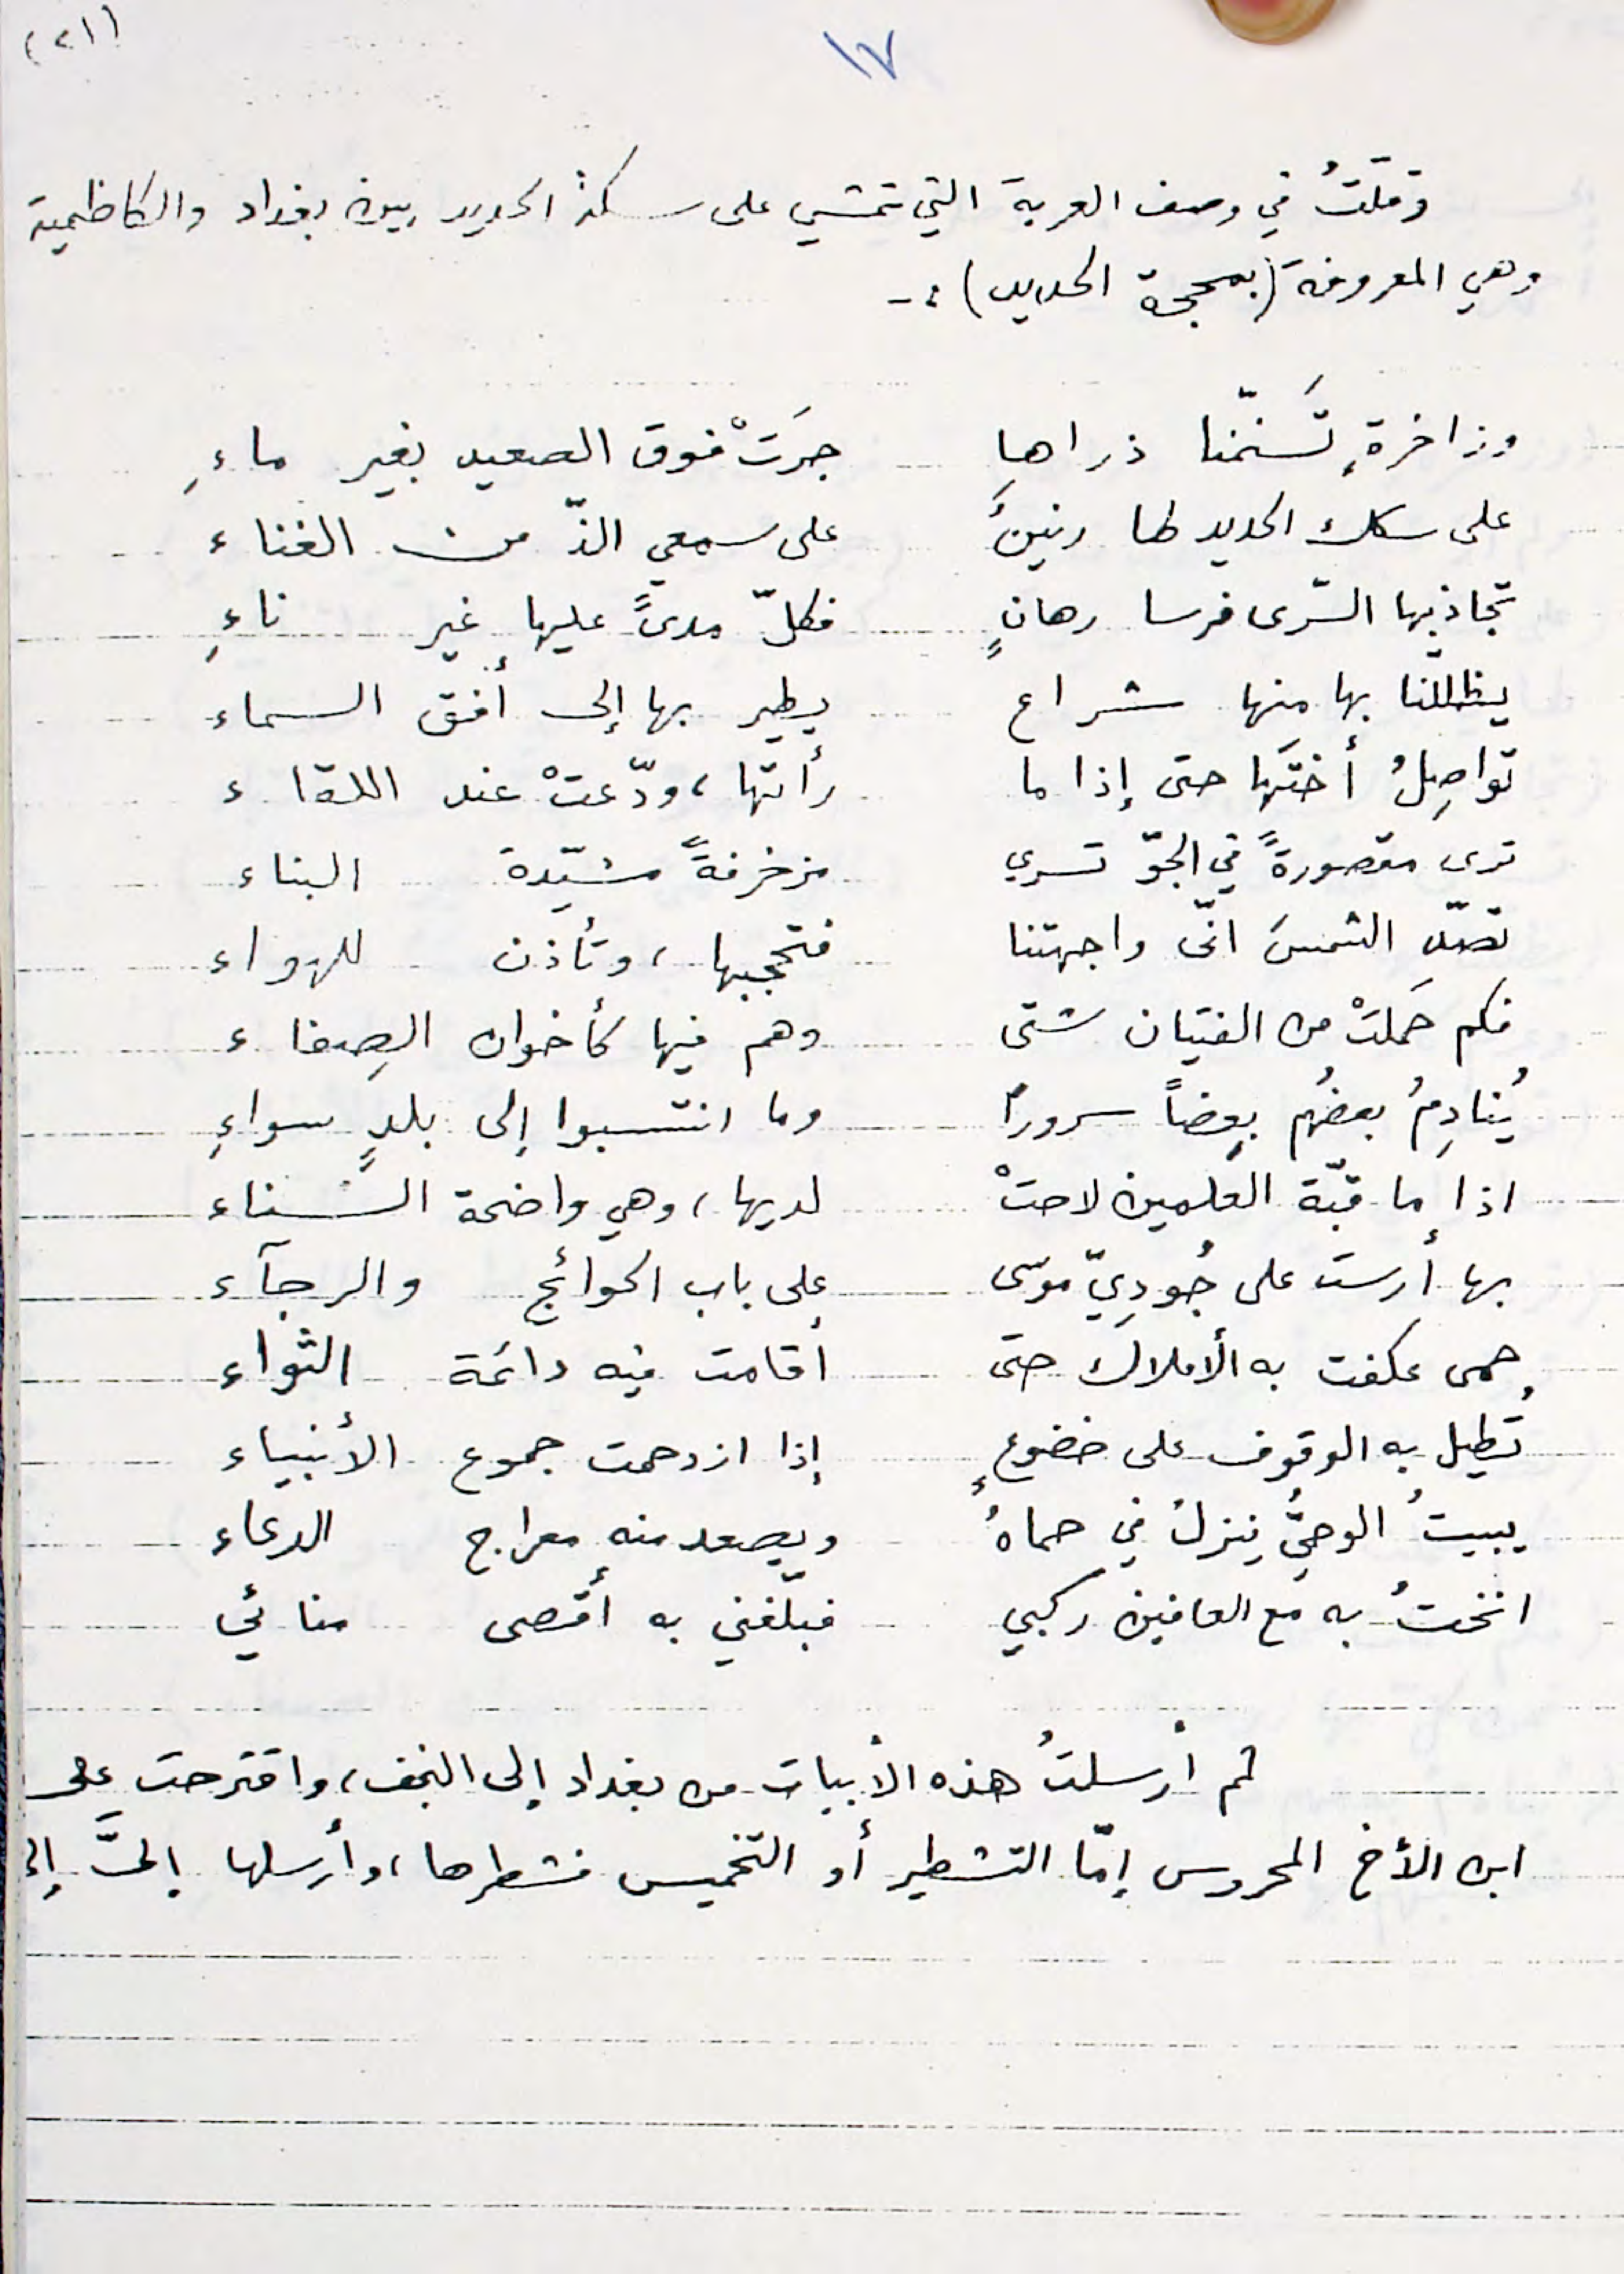 (٢١)
١٧
وقلتُ في وصف العربة التي تمشي على سكة الحديد بين بغداد والكاظمية
وهي المعروفة (بمحجة الحديد) :-
وزاخرةٍ تَسَنّمنا ذراها جرَتْ فوق الصعيد بغير ماءِ
على سكك الحديد لها رنينٌ على سمعي الذّ من الغناء
تجاذبها السّرى فرسا رهانٍ فكلّ مدىً عليها غير ناءِ
يظللّنا بها منها شراع يطير بها إلى أفق السماء
تواصِلُ أختَها حتى إذا ما رأتها، ودّعتْ عند اللقاء
ترى مقصورةً في الجوّ تسري مزخرفةً مشيّدة البناء
تصدّ الشمسَ انّى واجهتنا فتحجبها، وتأذن للهواء
فكم حَملتْ من الفتيان شتى وهم فيها كأخوان الصِفاء
يُنادِمُ بعضُهُم بعضاً سروراً وما انتسبوا إلى بلدٍ سواءِ
اذا ما قبّة العلمين لاحتْ لديها، وهي واضحة السّناء
بها أرست على جُودِيّ موسى على باب الحوائج والرجآء
حمى عكفت به الأملاك حتى أقامت فيه دائمة الثواء
تُطيل به الوقوف على خضوعٍ إذا ازدحمت جموع الأنبياء
يبيتُ الوحيُّ ينزلُ في حماهُ ويصعد منه معراج الدعاء
انختُ به مع العافين ركبي فبلّغني به أقصى منائي
ثم أرسلتُ هذه الأبيات من بغداد إلى النجف، واقترحت على
ابن الأخ المحروس إمّا التشطير أو التخميس فشطرها، وأرسلها إليَّ إلى